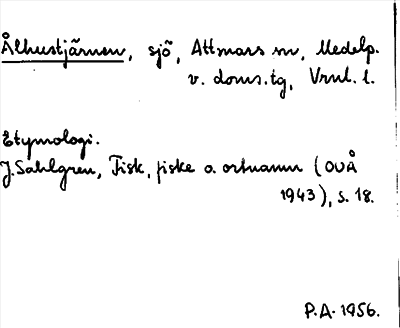 Ålhustjärnen, sjö, Attmars sn, Medelp.
v. doms.tg, Vrnl. l.
Etymologi.
J. Sahlgren, Fisk, fiske o. ortnamn (OUÅ
1943), s. 18.
P.A. 1956.